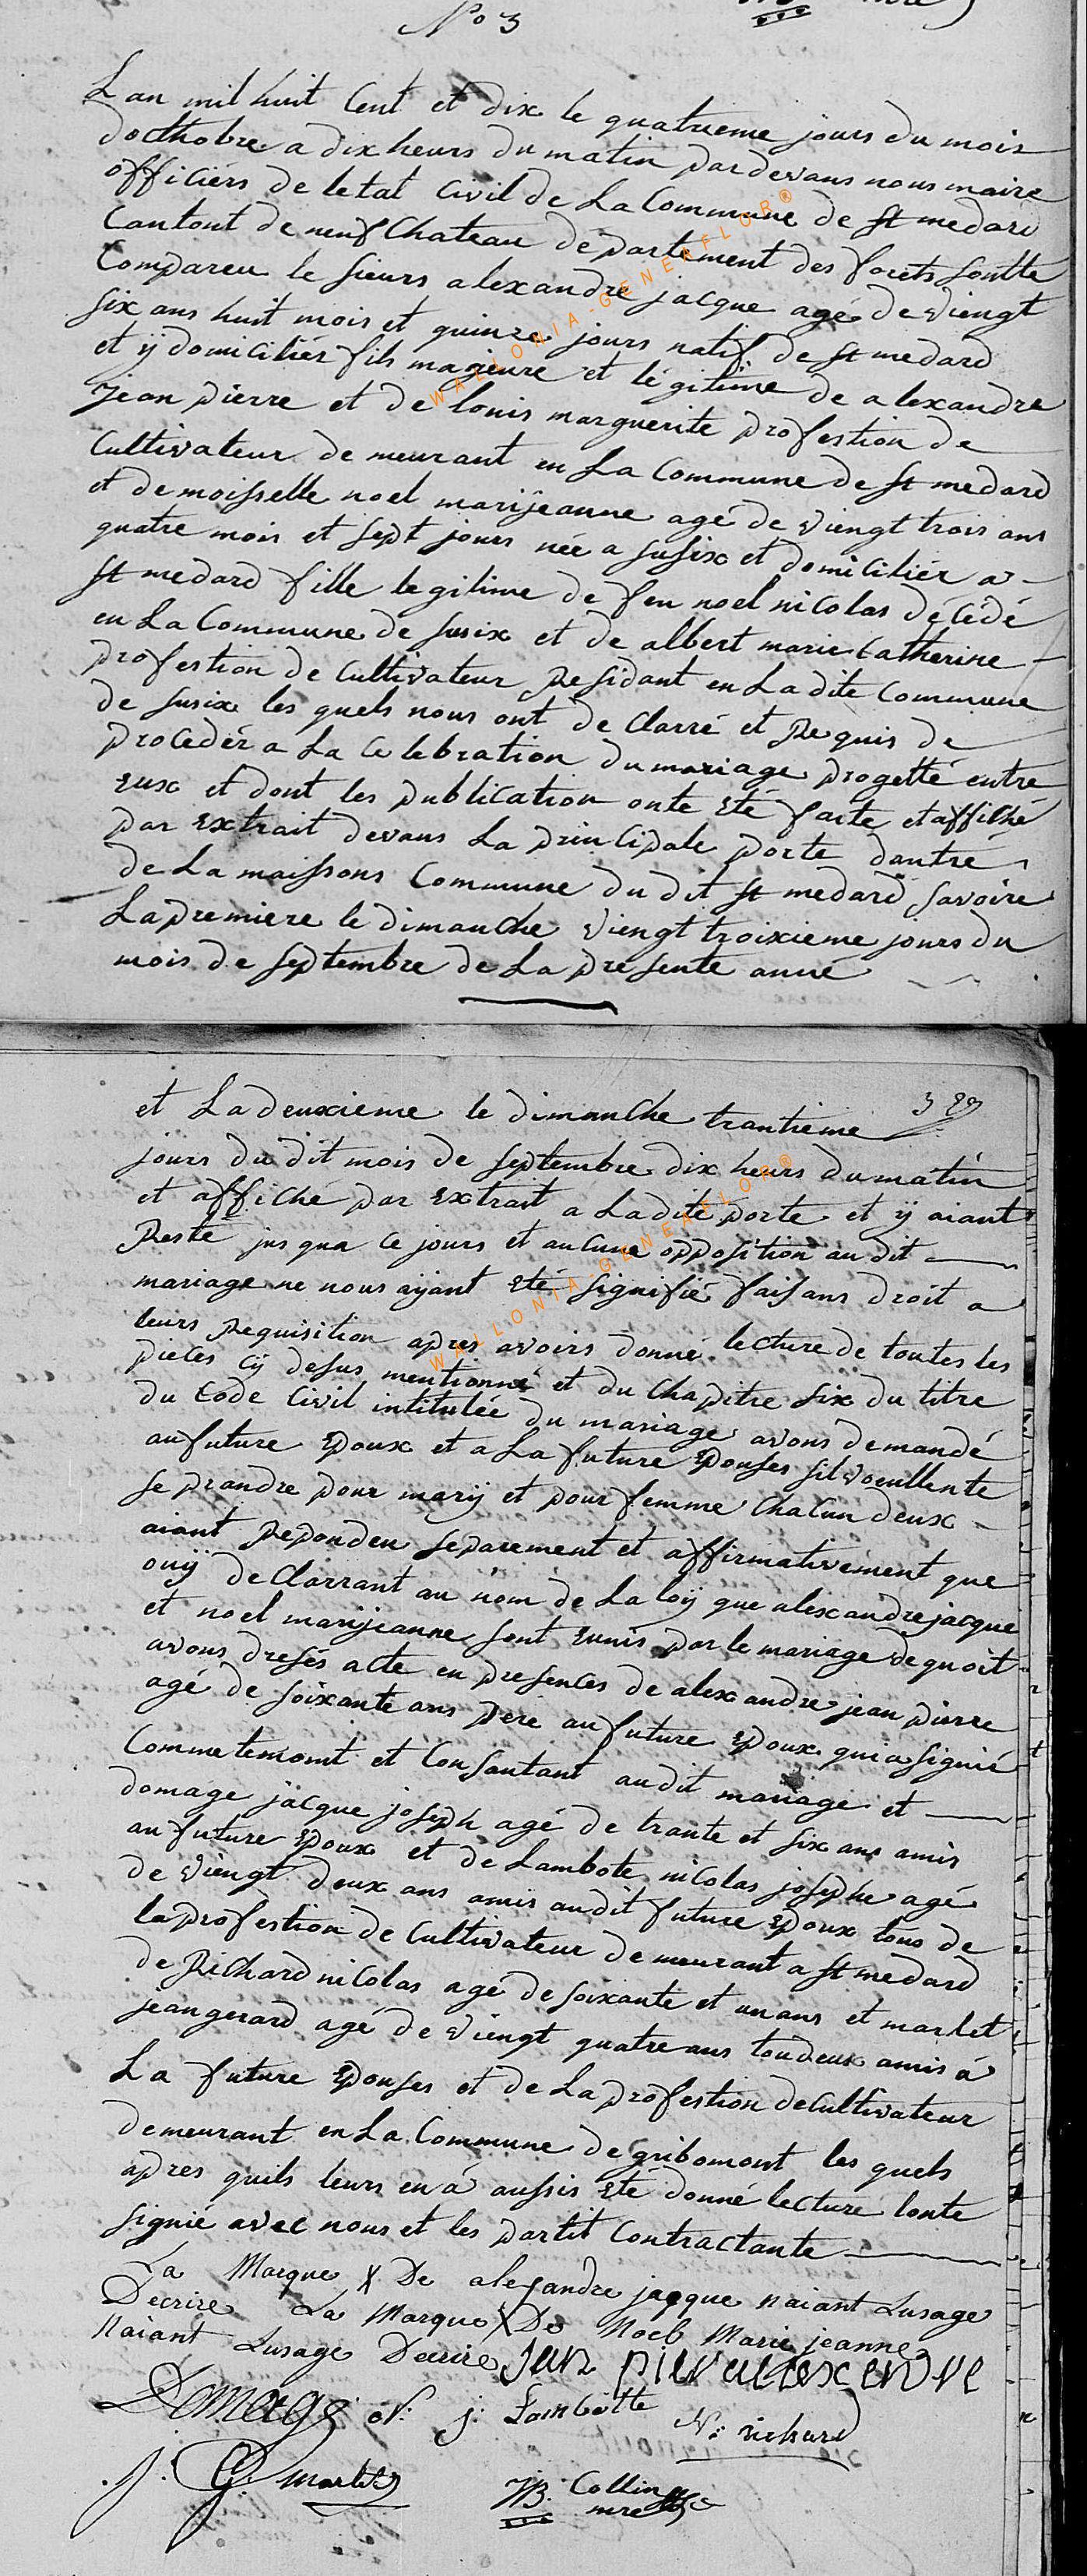 No 3
Lan mil huit Cent et dix le quatrieme jours du mois
docthobre a dix heurs du matin pardevans nous maire
officiérs de letat Civil de La Commune de St medard
Cantont de neufChateau departement des forets sontte
Compareu le sieurs alexandre jacque agé de viengt
six ans huit mois et quinze jours natif de St medard
et ÿ domiciliér fils majeure et légitime de alexandre
jean pierre et de louis marguerite profestion de
Cultivateur demeurant en La Commune de St medard
et demoisselle noel marijeanne agé de viengt trois ans
quatre mois et sept jours née a susix et domiciliér a
St medard fille legitime de feu noel nicolas décédé
en La Commune de susix et de albert marie Catherine
profestion de Cultivateur Residant en La dite Commune
de susix les quels nous ont declarré et Requis de
procedér a La Celebration du mariage progetté entre
eux et dont les publication onte eté faite et affiché
par extrait devans La principale porte dantré
de La maissons Commune du dit St medard savoire
La premiere le dimanche viengt troixieme jours du
mois de septembre de La presente anné
et La deuxieme le dimanche trantieme
jours du dit mois de septembre dix heurs du matin
et affiché par extrait a La dite porte et ÿ aiant
Resté jusqua ce jours et aucune opposition au dit
mariage ne nous aÿant eté signifié faisans droit a
leurs Requisition apres avoirs donné lecture de toutes les
pieces Cÿ desus mentionné et du Chapitre six du titre
du Code Civil intitulée du mariage avons demandé
au future epoux et a La future epouses sil voeullente
se prandre pour marÿ et pour femme Chacun deux
aiant Repondeu separement et affirmativement que
ouÿ declarrant au nom de La loÿ que alexandre jacque
et noel marijeanne sont eunis par le mariage de quoit
avons dresés acte en presences de alexandre jean pierre
agé de soixante ans pere au future epoux qui a signié
Comme temoint et Consantant au dit mariage et
domage jacque joseph agé de trante et six ans amis
au future epoux et de Lambote nicolas josephe agé
de viengt deux ans amis audit future epoux tous de
la profestion de Cultivateur demeurant a St medard
de Richard nicolas agé de soixante et un ans et marlet
jean gerard agé de viengt quatre ans toudeux amis á
La future epouses et de La profestion de Cultivateur
demeurant en La Commune de gribomont les quels
apres quils leurs en á aussis eté donné lecture lonte
signié avec nous et les partit Contractante
La Marque X De alexandre jacque naiant Lusage
Decrire La Marque X De Noel Marie jeanne
Naiant Lusage Decrire jean pierre allexendre
Domage N: j: Lambotte N: richard
j: G: marlet JB. Collin
mre
WALLONIA-GENEAFLOR®
WALLONIA-GENEAFLOR®